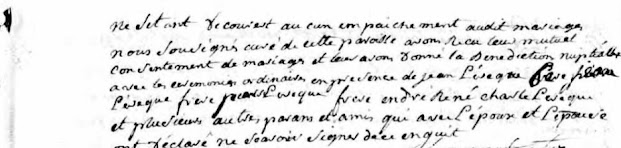 ne setant decouvert aucun empaichement audit mariage
nous sousignés curé de cette paroisse avons Recu leur mutuel
consentement de mariage et leur avons donné la Benediction nuptialle
avec les ceremonies ordinaires en presence de jean Lévèque frere pierre
Lévèque frere Leveque frere endré René charle Leveque
et plusieurs autres parans et amis qui avec Lepoux et Lepouse
ont déclaré ne scavoir signer de ce enquit